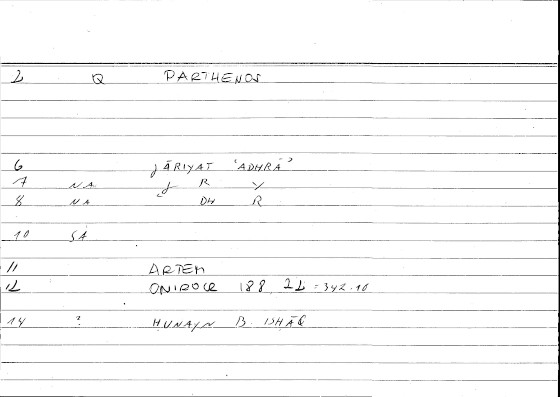 2 Q PARTHENOS
6 jĀRIYAT 'ADHRĀ'
7 NA j R Y
8 NA ' DH R
10 SA
11 ARTEM
12 ONIROCR 188, 22 = 342.10
14 ? HUNAYN B. ISHĀQ